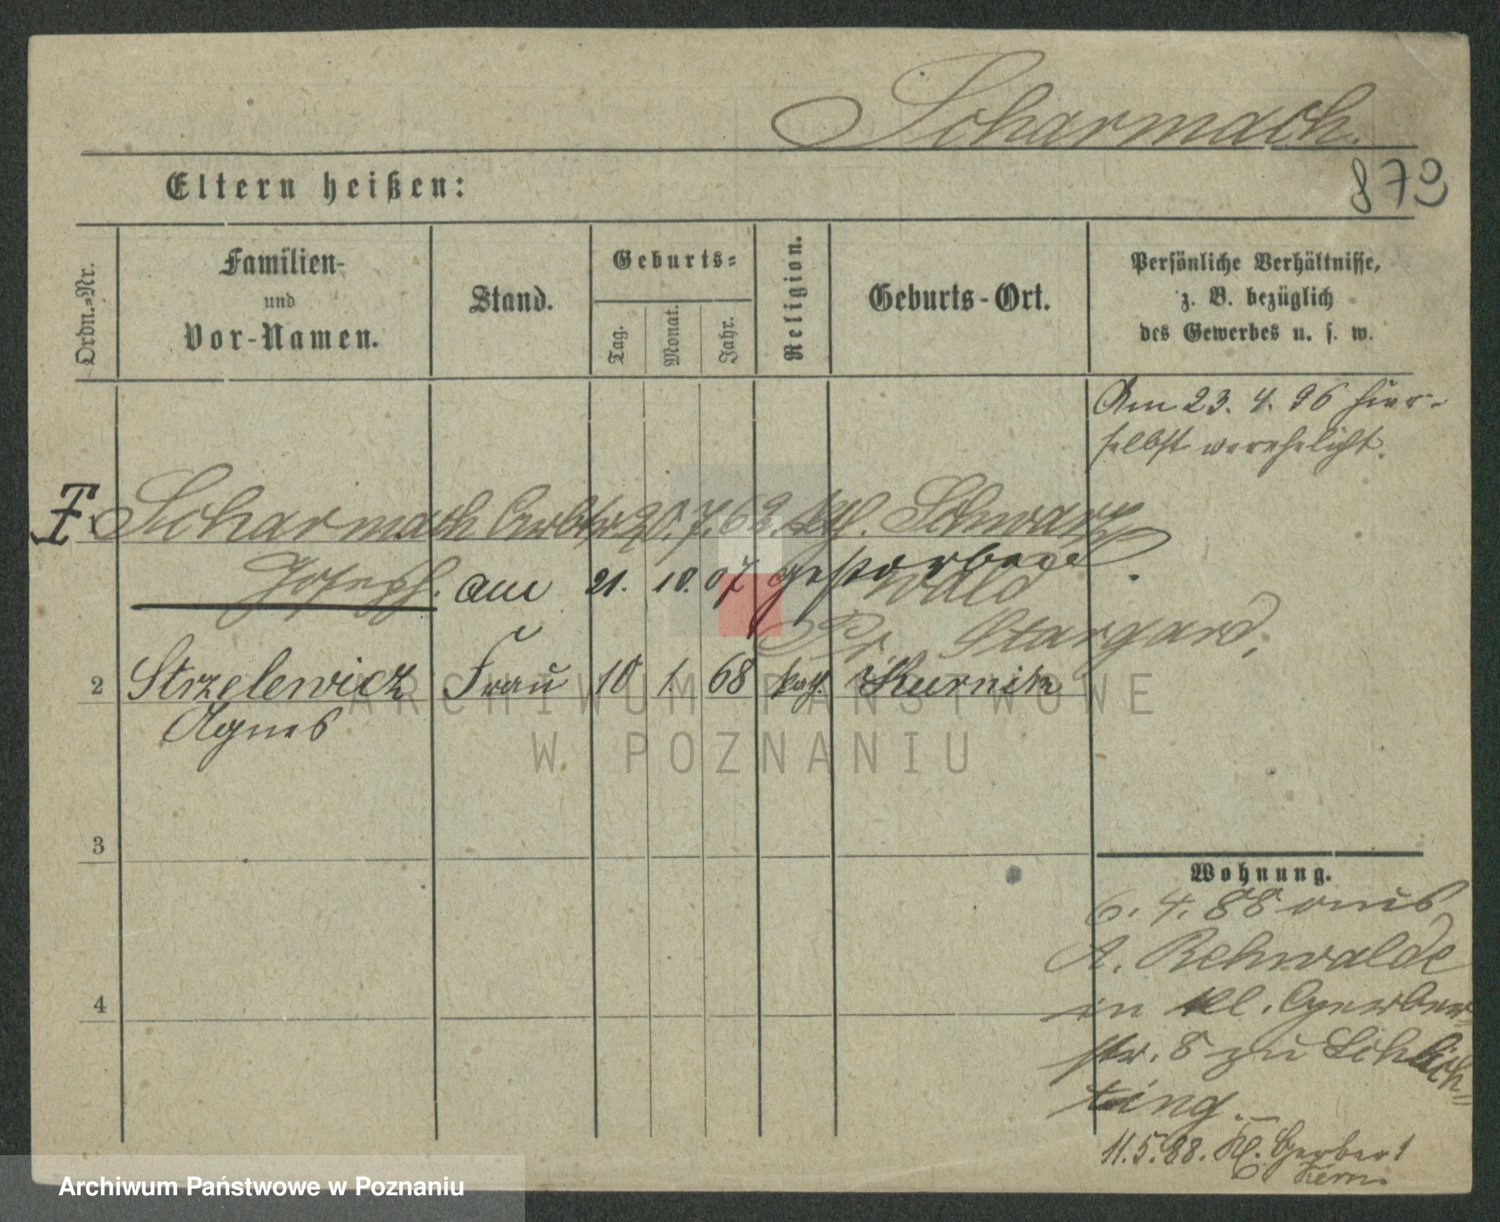 Scharmach.
873
Eltern heißen:
Ordn.-Nr.
Familien-
und
Vor-Namen.
Stand.
Geburts-
Tag.
Monat.
Jahr.
Religion.
Geburts-Ort.
Persönliche Verhältnisse,
z. B. bezüglich
des Gewerbes u. s. w.
Am 23. 4. 96 hier-
selbst verehelicht.
Scharmach Arbtr 20. 7. 62. kth. Schwarz
Joseph. am 21. 10. 07 gestorben.
wald
Pr. Stargard.
2 Strzelewicz Frau 10 1. 68 kath. Kurnik
Agnes
ARCHIWUM PAŃSTWOWE
W POZNANIU
3
Wohnung.
6. 4. 88 aus
A. Rehwalde
4
in Kl. Gerber
str. 8 zu Schlich-
ting.
11. 5. 88. Kl. Gerber 1
Kern.
Archiwum Państwowe w Poznaniu